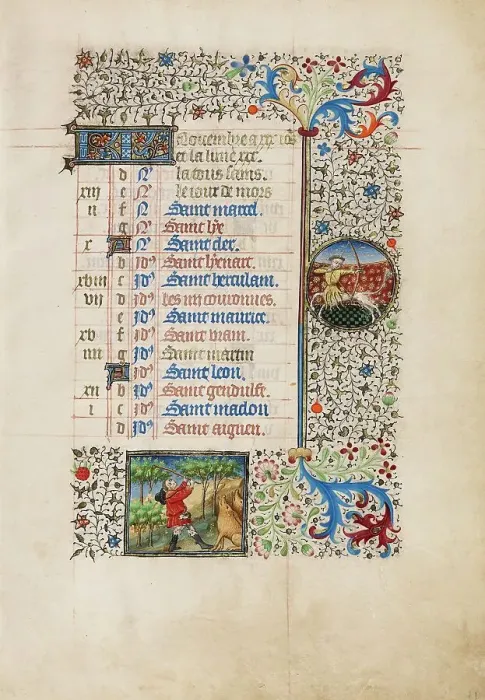 Nouembre a xxx iours
et la lune xxx.
d N la tous sains.
xiii e N le iour de mors
ii f N Saint marcel.
g N Saint lye
x A N Saint cler.
b Id9 Saint lyenart.
xviii c Id9 Saint herculain.
vii d Id9 les iiii couronnes.
e Id9 Saint maurice.
xv f Id9 Saint vrain.
iiii g Id9 Saint martin
A Id9 Saint leon.
xii b Id9 Saint gendulfe.
i c Id9 Saint maclou
d Id9 Saint aignen.